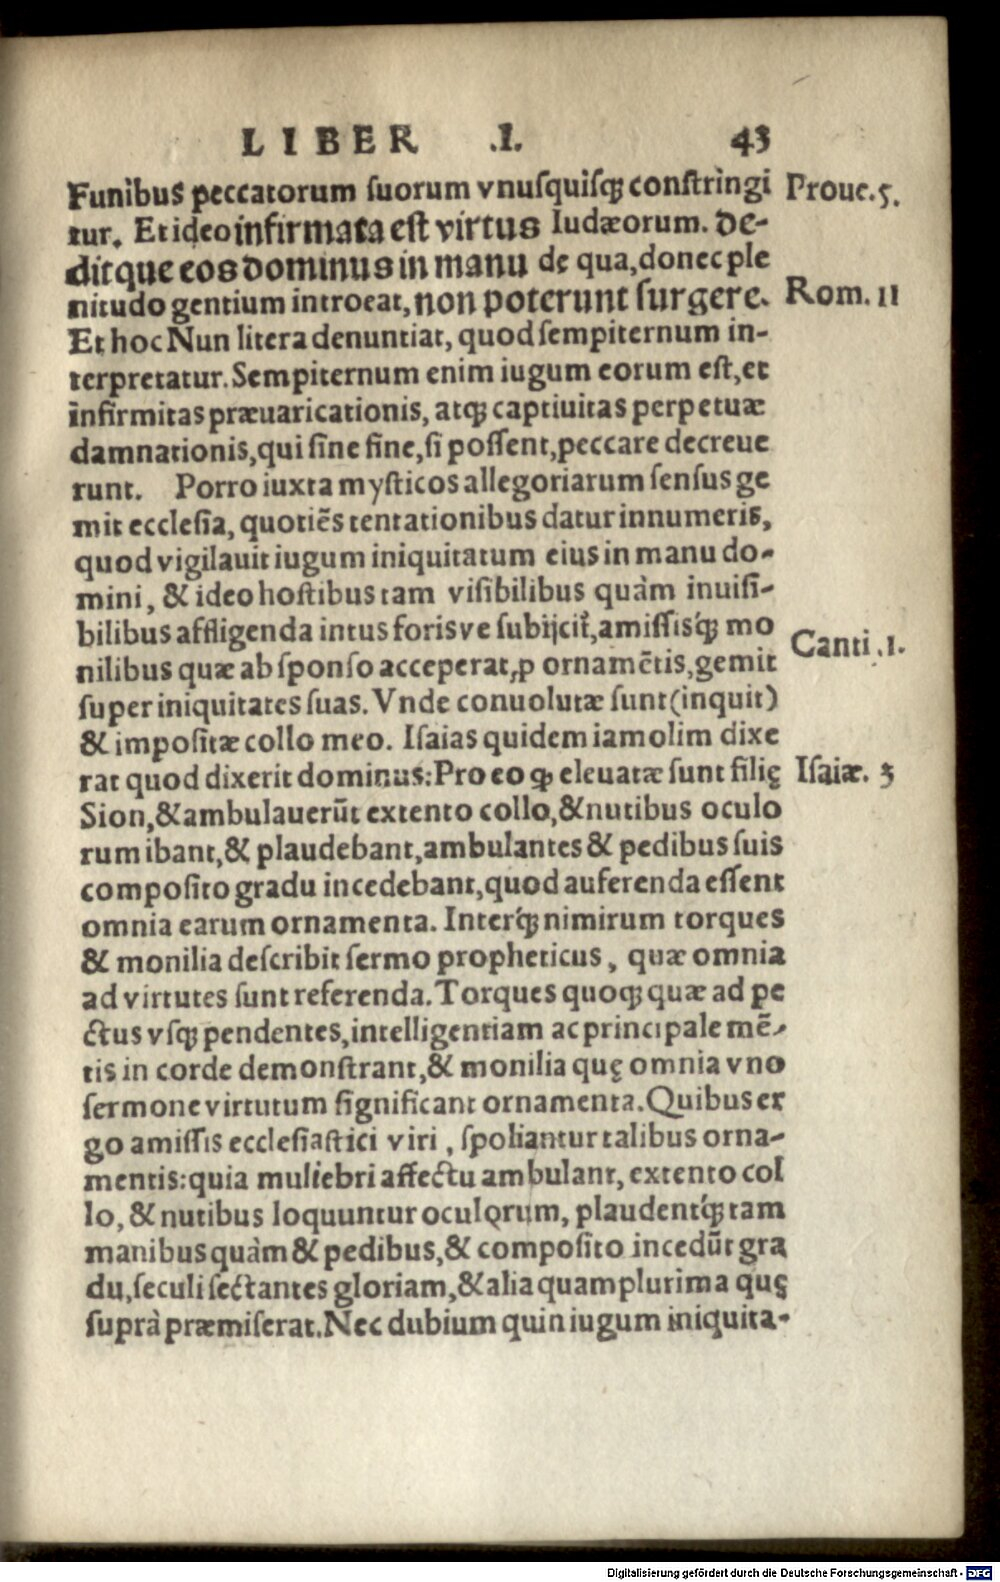 LIBER .I. 43
Funibus peccatorum suorum vnusquisq́ꝫ constringi Prouc.5.
tur. Et ideo infirmata est virtus Iudæorum. De-
ditque eos dominus in manu de qua, donec ple
nitudo gentium introeat, non poterunt surgere. Rom. 11
Et hoc Nun litera denuntiat, quod sempiternum in-
terpretatur. Sempiternum enim iugum eorum est, et
infirmitas præuaricationis, atqꝫ captiuitas perpetuæ
damnationis, qui sine fine, si possent, peccare decreue
runt. Porro iuxta mysticos allegoriarum sensus ge
mit ecclesia, quotiēs tentationibus datur innumeris,
quod vigilauit iugum iniquitatum eius in manu do-
mini, & ideo hostibus tam visibilibus quàm inuisi-
bilibus affligenda intus forisve subijcit̃, amissisq́ꝫ mo
nilibus quæ ab sponso acceperat, ꝓ ornamētis, gemit Canti .1.
super iniquitates suas. Vnde conuolutæ sunt (inquit)
& impositæ collo meo. Isaias quidem iam olim dixe
rat quod dixerit dominus: Pro eo ꝙ eleuatæ sunt filię Isaiæ. 3
Sion, & ambulauerūt extento collo, & nutibus oculo
rum ibant, & plaudebant, ambulantes & pedibus suis
composito gradu incedebant, quod auferenda essent
omnia earum ornamenta. Interq́ꝫ nimirum torques
& monilia describit sermo propheticus, quæ omnia
ad virtutes sunt referenda. Torques quoqꝫ quæ ad pe
ctus vsqꝫ pendentes, intelligentiam ac principale mē-
tis in corde demonstrant, & monilia quę omnia vno
sermone virtutum significant ornamenta. Quibus er
go amissis ecclesiastici viri, spoliantur talibus orna-
mentis: quia muliebri affectu ambulant, extento col
lo, & nutibus loquuntur oculorum, plaudentq́ꝫ tam
manibus quàm & pedibus, & composito incedūt gra
du, seculi sectantes gloriam, & alia quamplurima quę
suprà præmiserat. Nec dubium quin iugum iniquita-
Digitalisierung gefördert durch die Deutsche Forschungsgemeinschaft - DFG